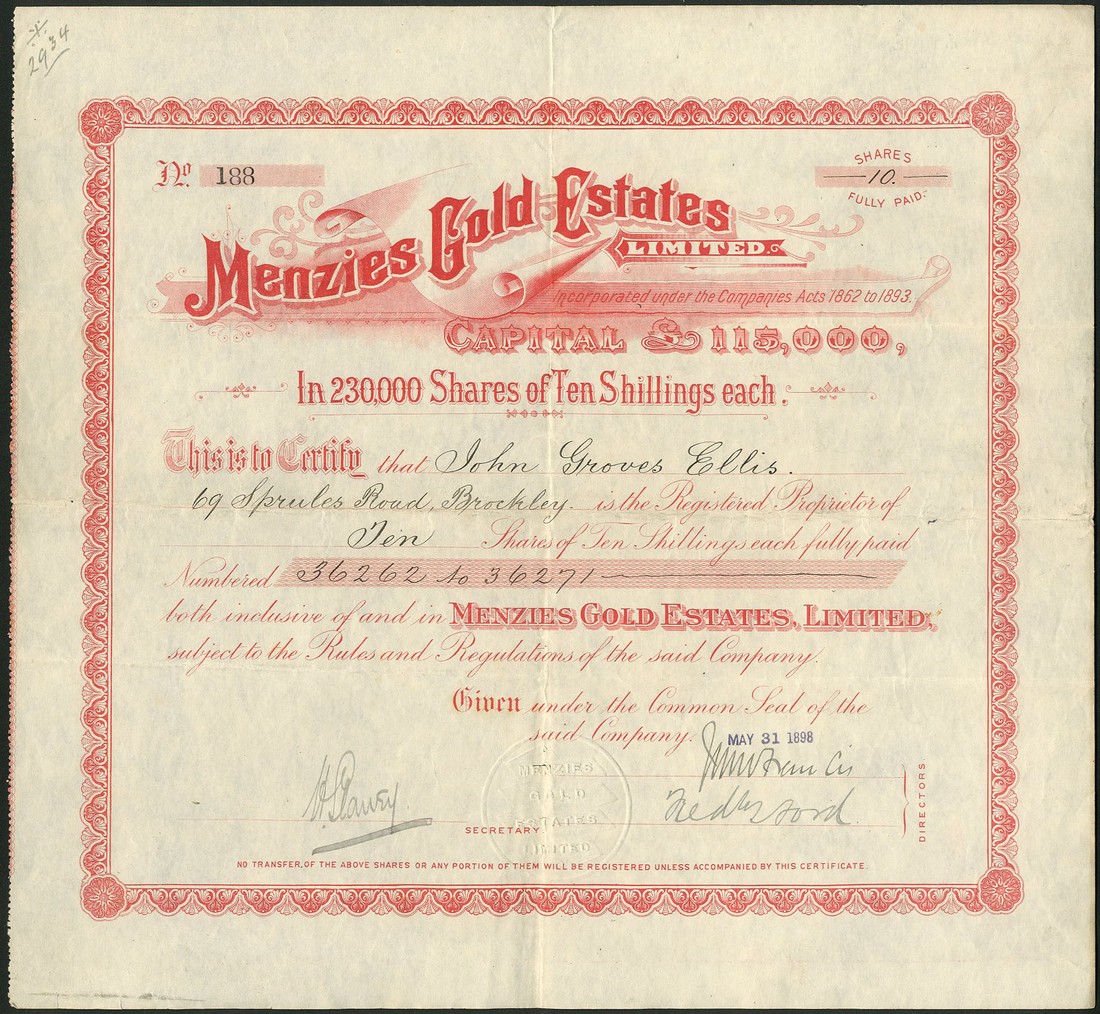 2934
No. 188
SHARES
10.
FULLY PAID.
Menzies Gold Estates
LIMITED.
Incorporated under the Companies Acts 1862 to 1893.
CAPITAL £115,000,
In 230,000 Shares of Ten Shillings each.
This is to Certify that John Groves Ellis.
69 Sprules Road, Brockley. is the Registered Proprietor of
Ten Shares of Ten Shillings each fully paid
Numbered 36262 to 36271
both inclusive of and in MENZIES GOLD ESTATES, LIMITED,
subject to the Rules and Regulations of the said Company.
Given under the Common Seal of the
said Company.
MAY 31 1898
MENZIES
GOLD
ESTATES
LIMITED
SECRETARY.
DIRECTORS
NO TRANSFER, OF THE ABOVE SHARES OR ANY PORTION OF THEM WILL BE REGISTERED UNLESS ACCOMPANIED BY THIS CERTIFICATE.